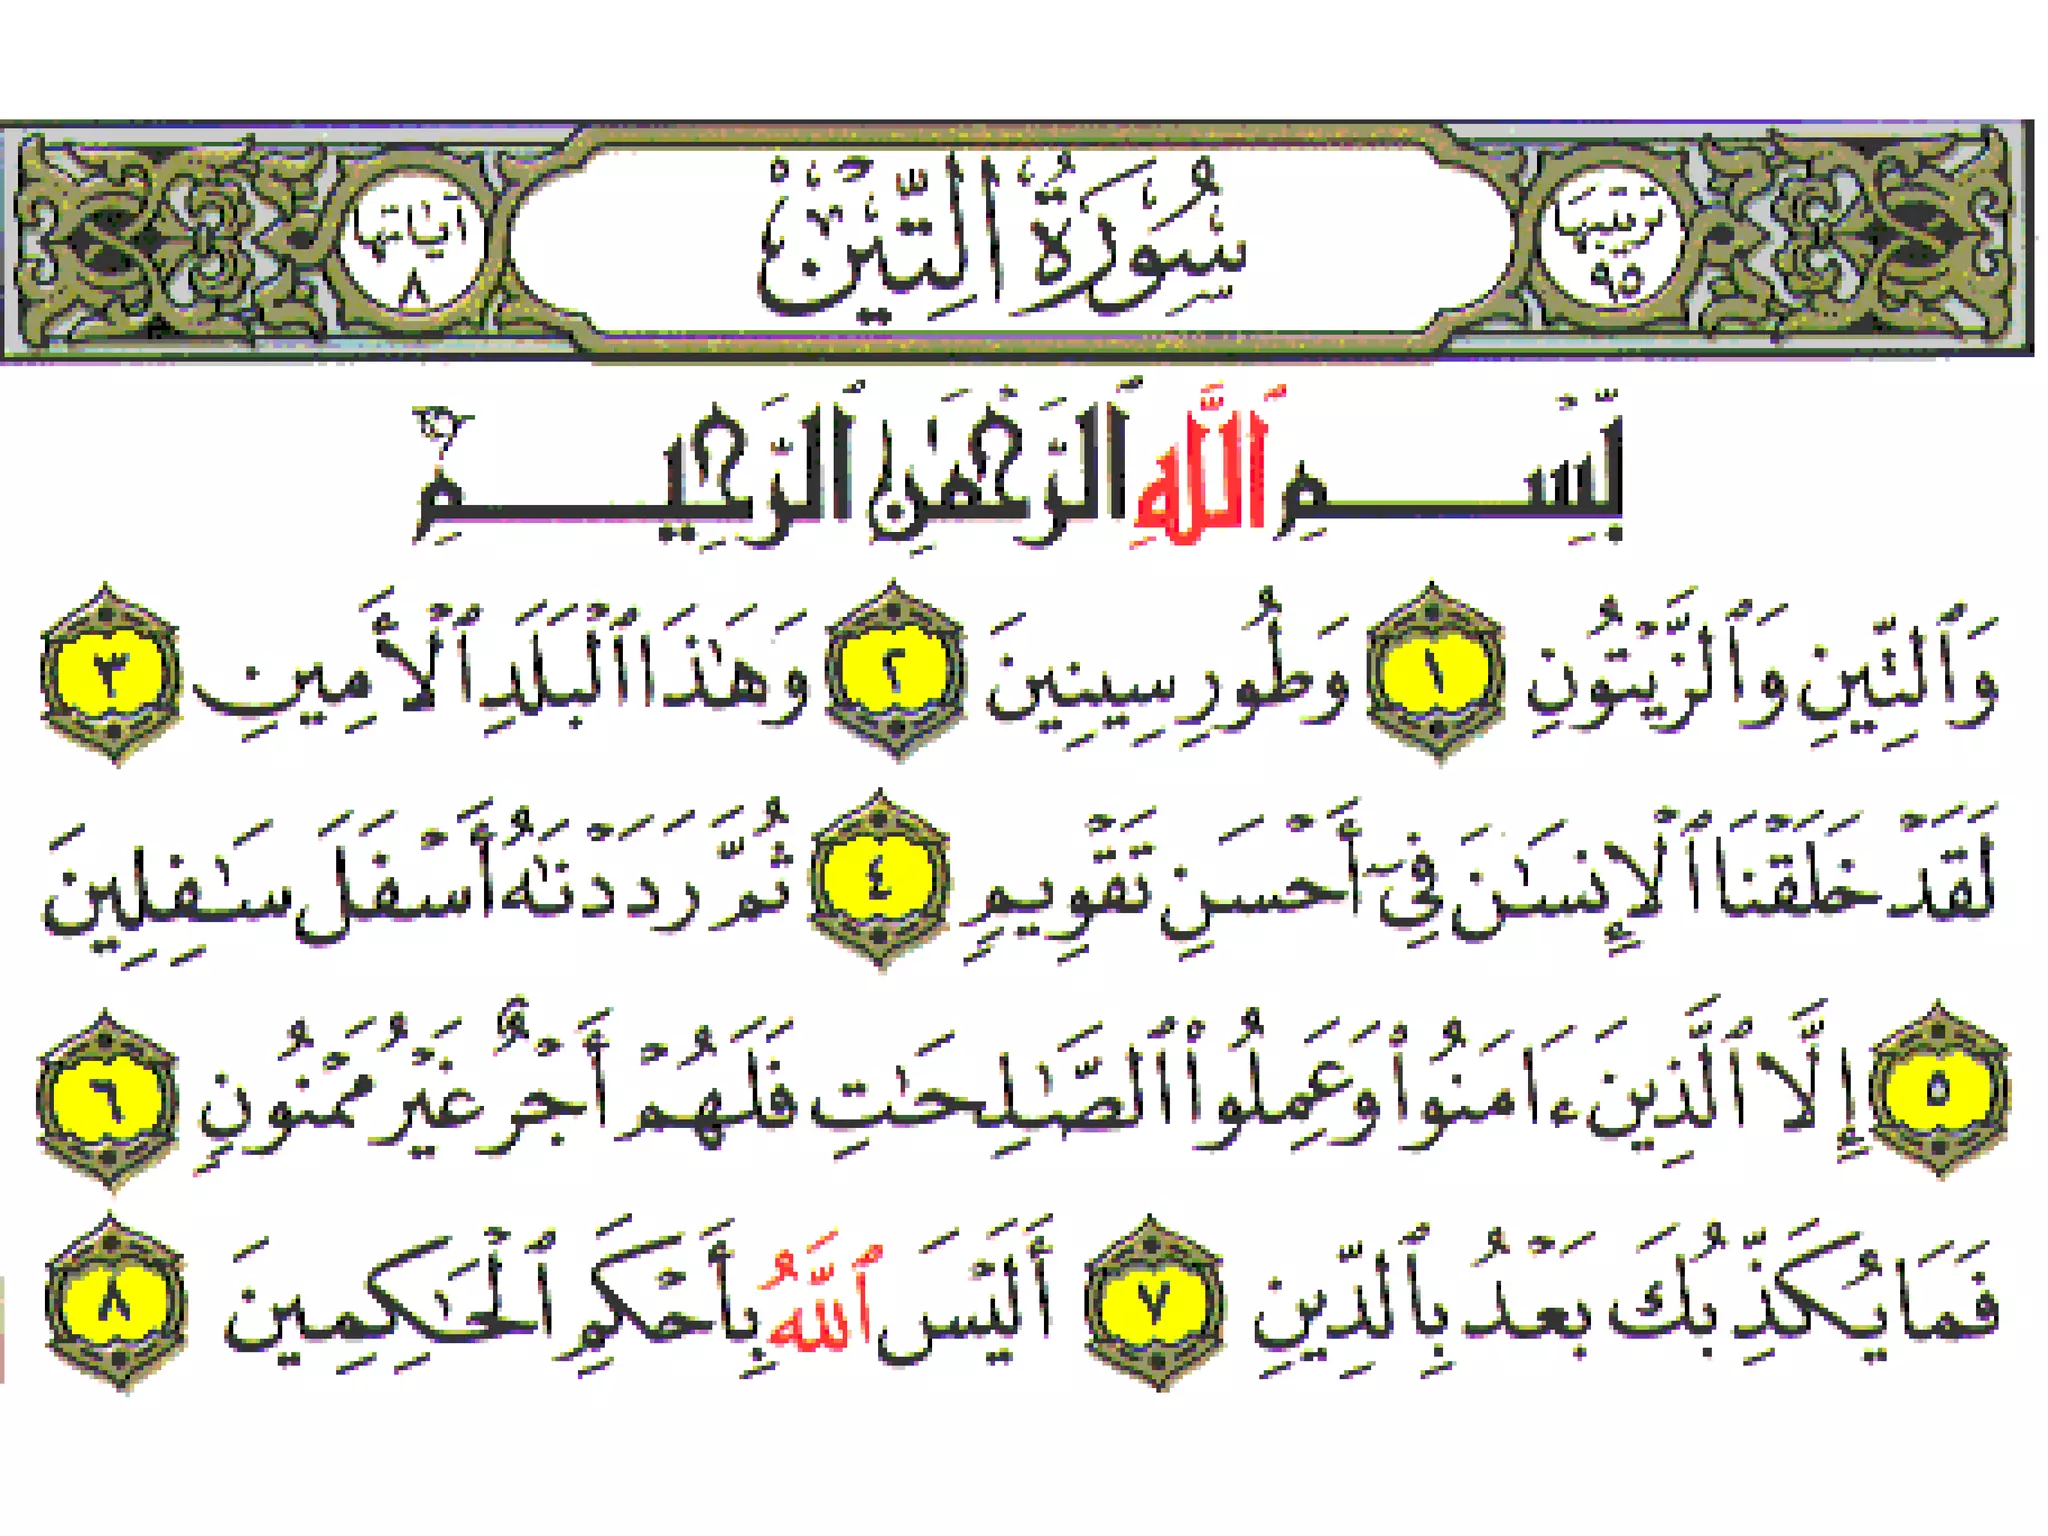 ترتيبها ٩٥
سُورَةُ التِّينِ
آياتها ٨
بِّسۡمِ ٱللَّهِ ٱلرَّحۡمَٰنِ ٱلرَّحِيمِ
وَٱلتِّينِ وَٱلزَّيۡتُونِ ١ وَطُورِ سِينِينَ ٢ وَهَٰذَا ٱلۡبَلَدِ ٱلۡأَمِينِ ٣
لَقَدۡ خَلَقۡنَا ٱلۡإِنسَٰنَ فِيٓ أَحۡسَنِ تَقۡوِيمٖ ٤ ثُمَّ رَدَدۡنَٰهُ أَسۡفَلَ سَٰفِلِينَ
٥ إِلَّا ٱلَّذِينَ ءَامَنُواْ وَعَمِلُواْ ٱلصَّٰلِحَٰتِ فَلَهُمۡ أَجۡرٌ غَيۡرُ مَمۡنُونٖ ٦
فَمَا يُكَذِّبُكَ بَعۡدُ بِٱلدِّينِ ٧ أَلَيۡسَ ٱللَّهُ بِأَحۡكَمِ ٱلۡحَٰكِمِينَ ٨